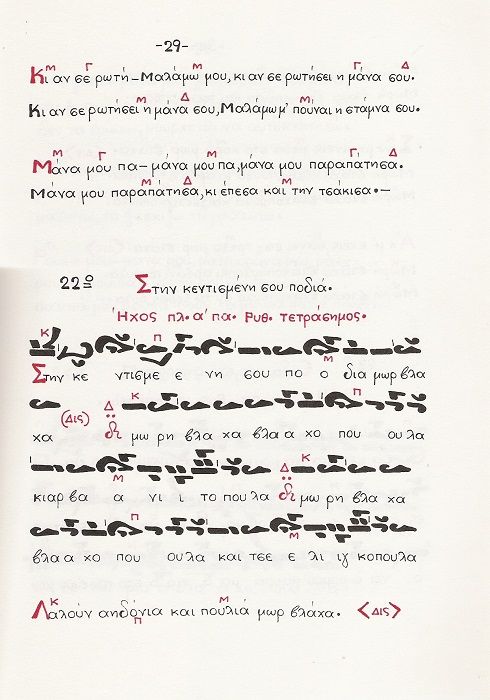 -29-
Κι αν σε ρωτή-Μαλάμω μου, κι αν σε ρωτήσει η μάνα σου.
Κι αν σε ρωτήσει η μάνα σου, Μαλάμω μ' πούναι η στάμνα σου.
Μάνα μου πα-μάνα μου πα, μάνα μου παραπάτησα.
Μάνα μου παραπάτησα, κι έπεσα και την τσάκισα.-
22ο Στην κεντισμένη σου ποδιά.
Ήχος πλ. α' πα. Ρυθ. τετράσημος.
Στην κε ντισμε ε νη σου πο ο δια μωρ βλα
χα (Δις) μω ρη βλα χα βλα α χο που ου λα
κιαρ βα α νι ι το που λα μω ρη βλα χα
βλα α χο που ου λα και τσε ε λι ιγ κοπουλα
Λαλούν αηδόνια και πουλιά μωρ βλάχα. <Δις>